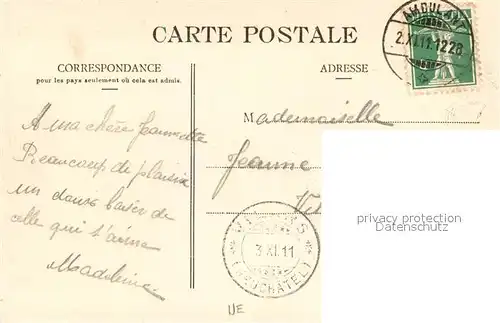 CARTE POSTALE
CORRESPONDANCE
pour les pays seulement où cela est admis.
ADRESSE
AMBULANT
2.XI.11.1228
A ma chère Jeannette
Beaucoup de plaisir
un doux baiser de
celle qui t'aime
Madeleine
Mademoiselle
Jeanne
3.XI.11
(NEUCHÂTEL)
privacy protection
watermark
UE